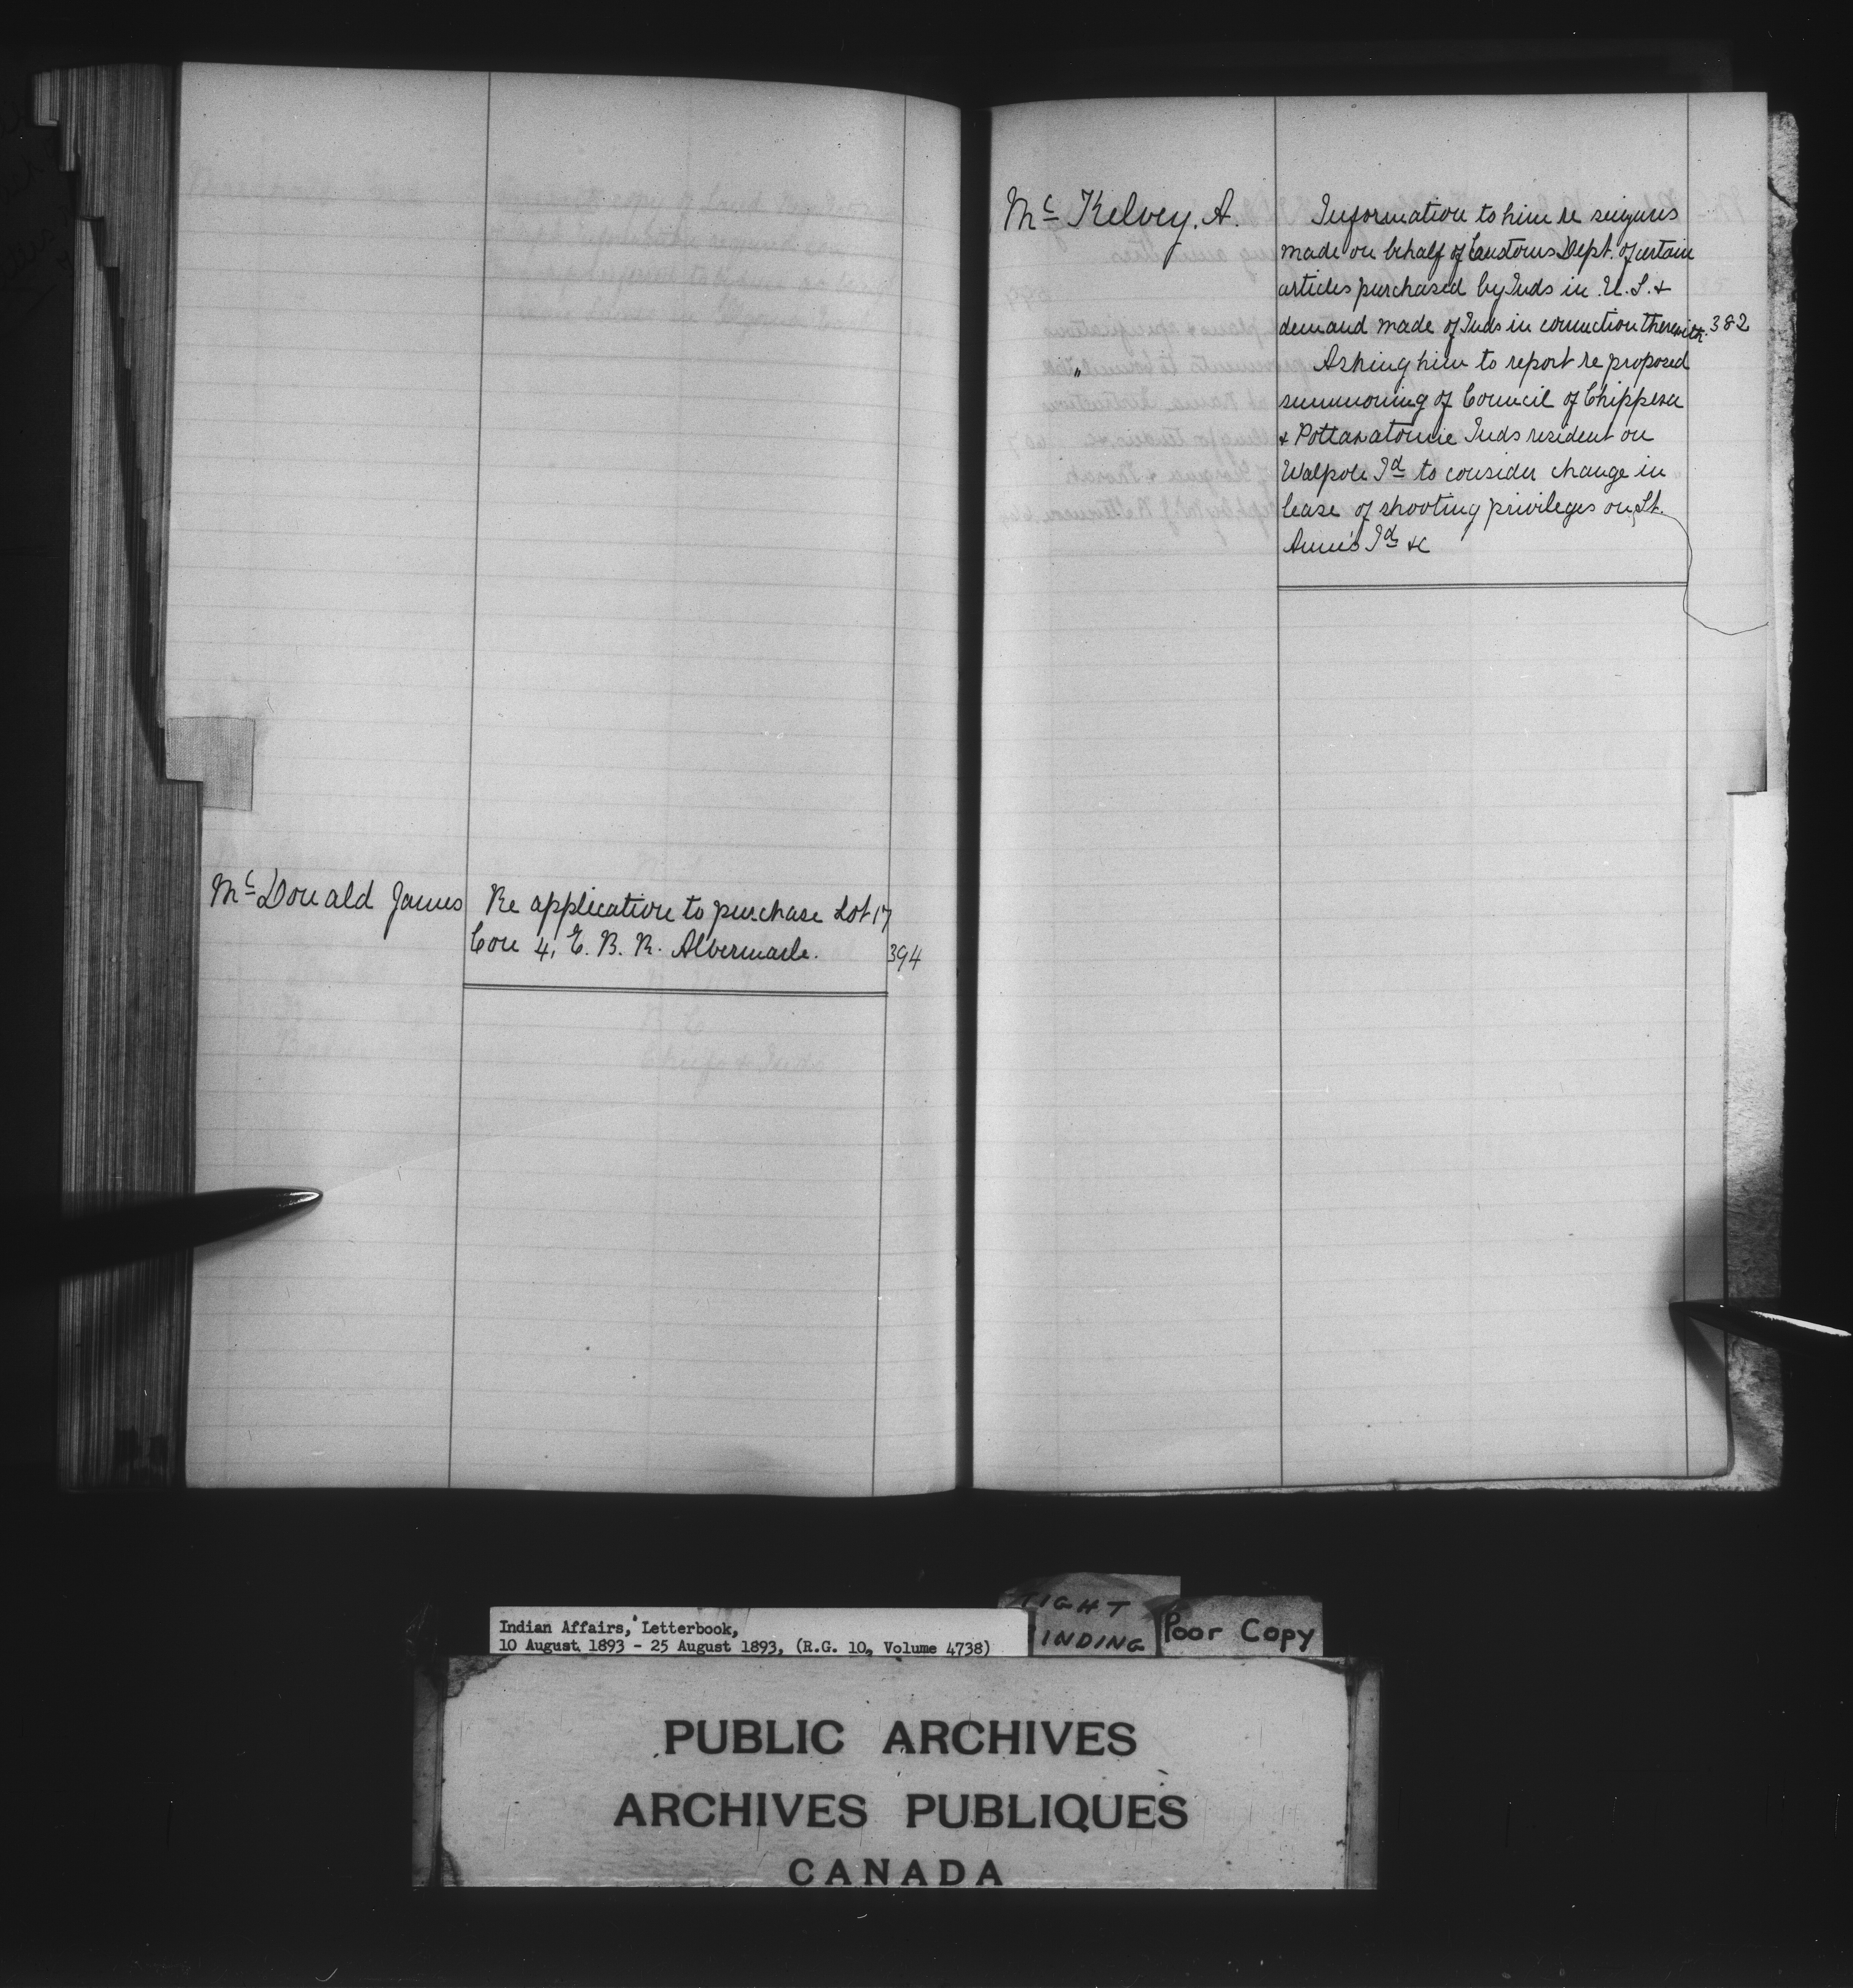 Mc Donald James Re application to purchase Lot 17
Con 4, E. B. R. Albermarle. 394
Mc Kelvey, A. Information to him re seizures
made on behalf of Customs Dept. of certain
articles purchased by Inds in U. S. &
demand made of Inds in connection therewith. 382
" Asking him to report re proposed
summoning of Council of Chippewa
& Pottawatomie Inds resident on
Walpole Id to consider change in
lease of shooting privileges on St.
Anne's Id &c
Indian Affairs, Letterbook,
10 August 1893 - 25 August 1893, (R.G. 10, Volume 4738)
TIGHT
INDING
Poor Copy
PUBLIC ARCHIVES
ARCHIVES PUBLIQUES
CANADA